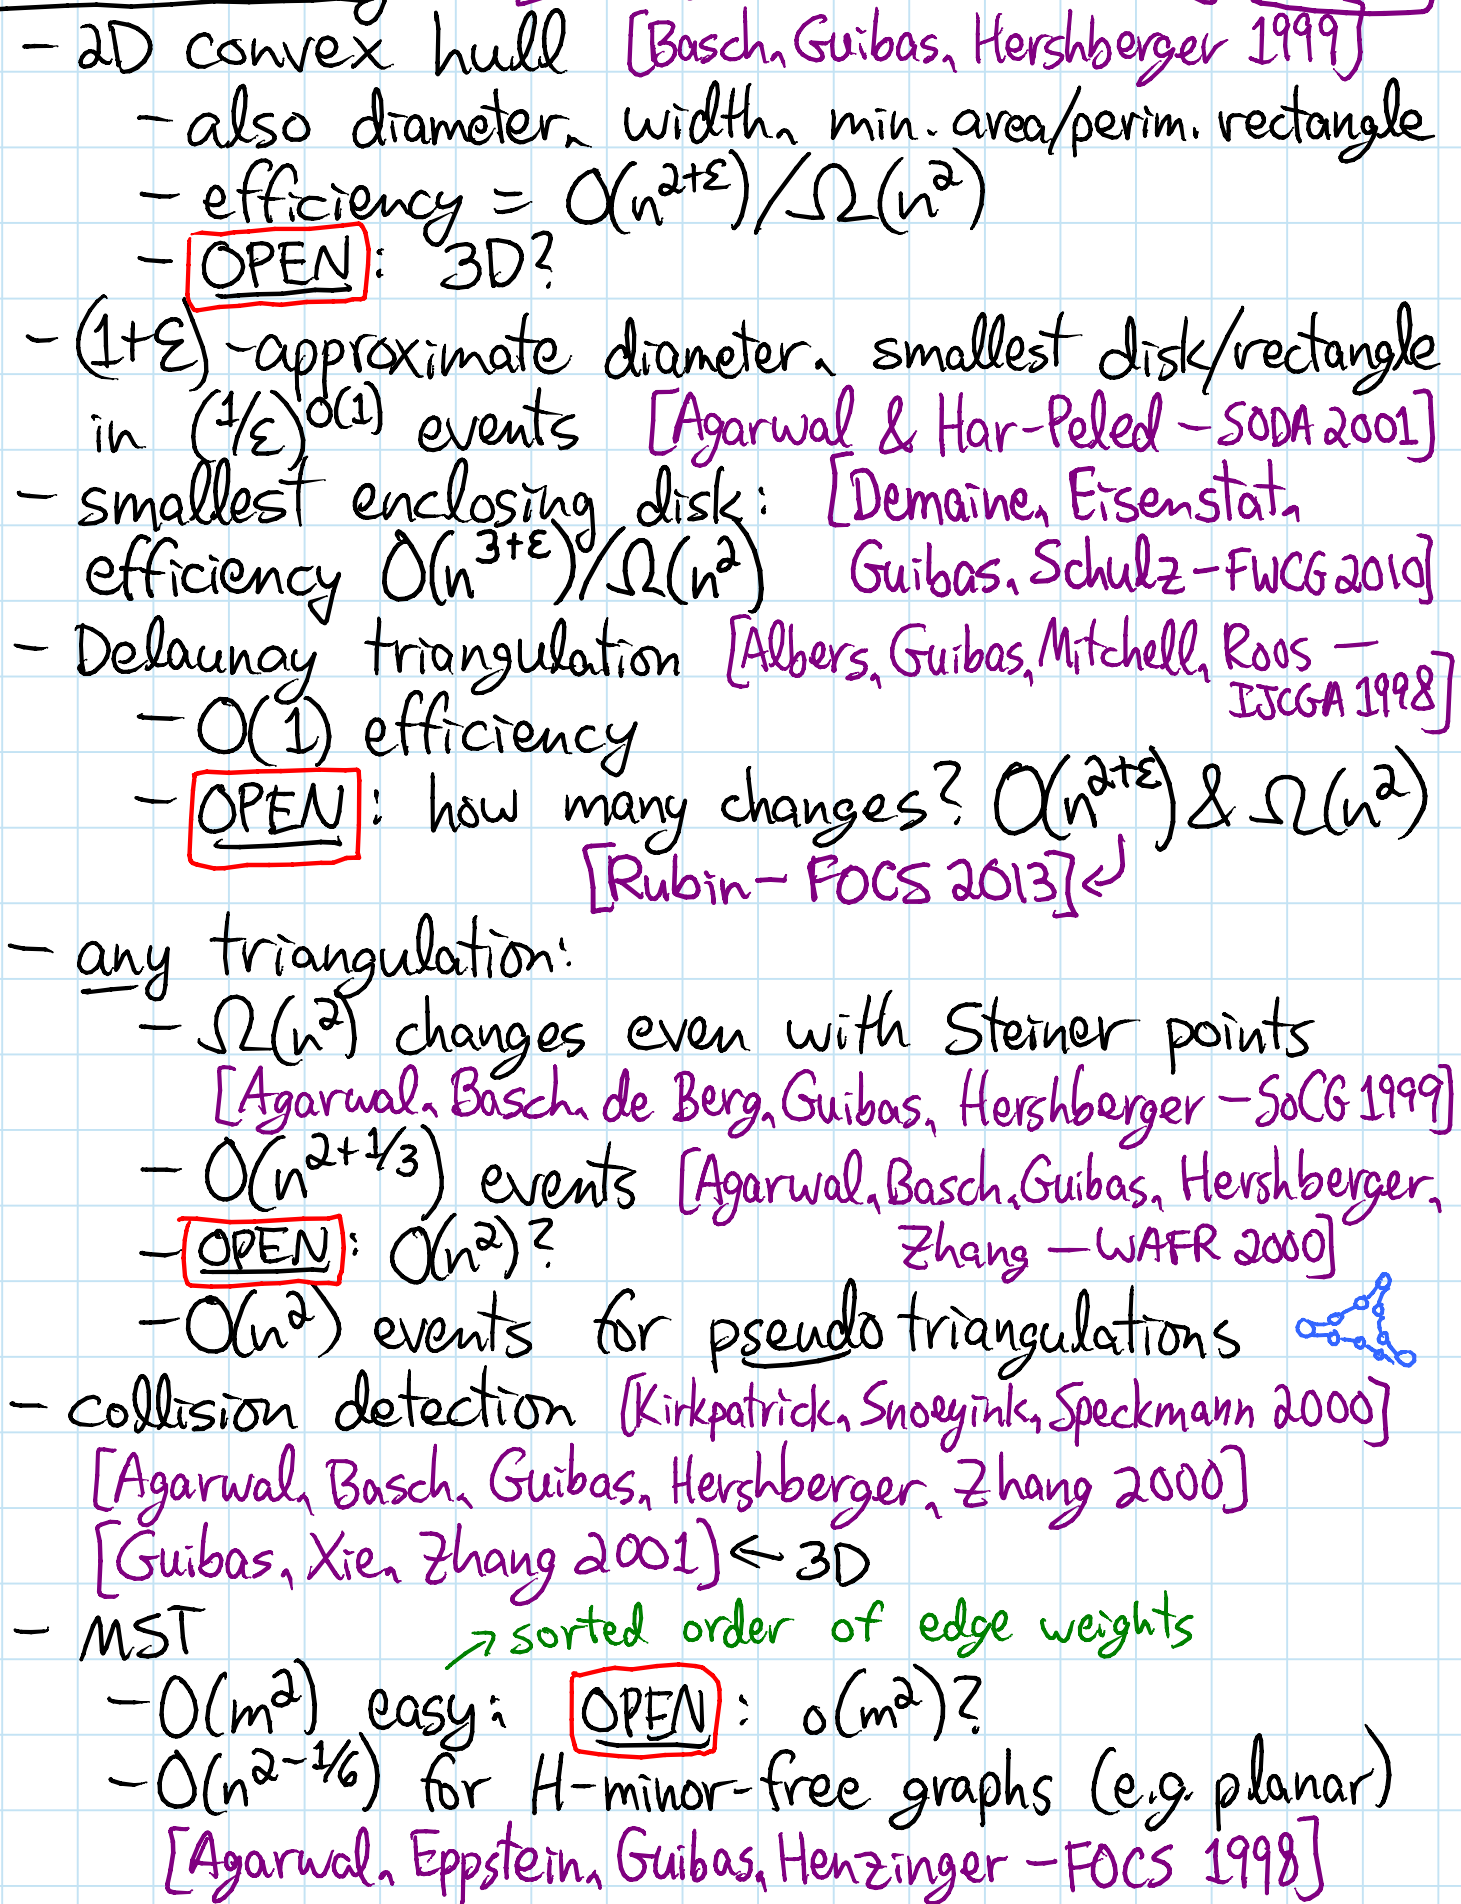 - 2D convex hull [Basch, Guibas, Hershberger 1999]
- also diameter, width, min. area/perim. rectangle
- efficiency = O(n^{2+ε})/Ω(n²)
- OPEN: 3D?
- (1+ε)-approximate diameter, smallest disk/rectangle
in (1/ε)^{O(1)} events [Agarwal & Har-Peled - SODA 2001]
- smallest enclosing disk: [Demaine, Eisenstat,
efficiency O(n^{3+ε})/Ω(n²) Guibas, Schulz - FWCG 2010]
- Delaunay triangulation [Albers, Guibas, Mitchell, Roos —
IJCGA 1998]
- O(1) efficiency
- OPEN: how many changes? O(n^{2+ε}) & Ω(n²)
[Rubin - FOCS 2013]↲
- any triangulation:
- Ω(n²) changes even with Steiner points
[Agarwal, Basch, de Berg, Guibas, Hershberger - SoCG 1999]
- O(n^{2+1/3}) events [Agarwal, Basch, Guibas, Hershberger,
Zhang - WAFR 2000]
- OPEN: O(n²)?
- O(n²) events for pseudotriangulations
- collision detection [Kirkpatrick, Snoeyink, Speckmann 2000]
[Agarwal, Basch, Guibas, Hershberger, Zhang 2000]
[Guibas, Xie, Zhang 2001] ← 3D
- MST → sorted order of edge weights
- O(m²) easy; OPEN: o(m²)?
- O(n^{2-1/6}) for H-minor-free graphs (e.g. planar)
[Agarwal, Eppstein, Guibas, Henzinger - FOCS 1998]